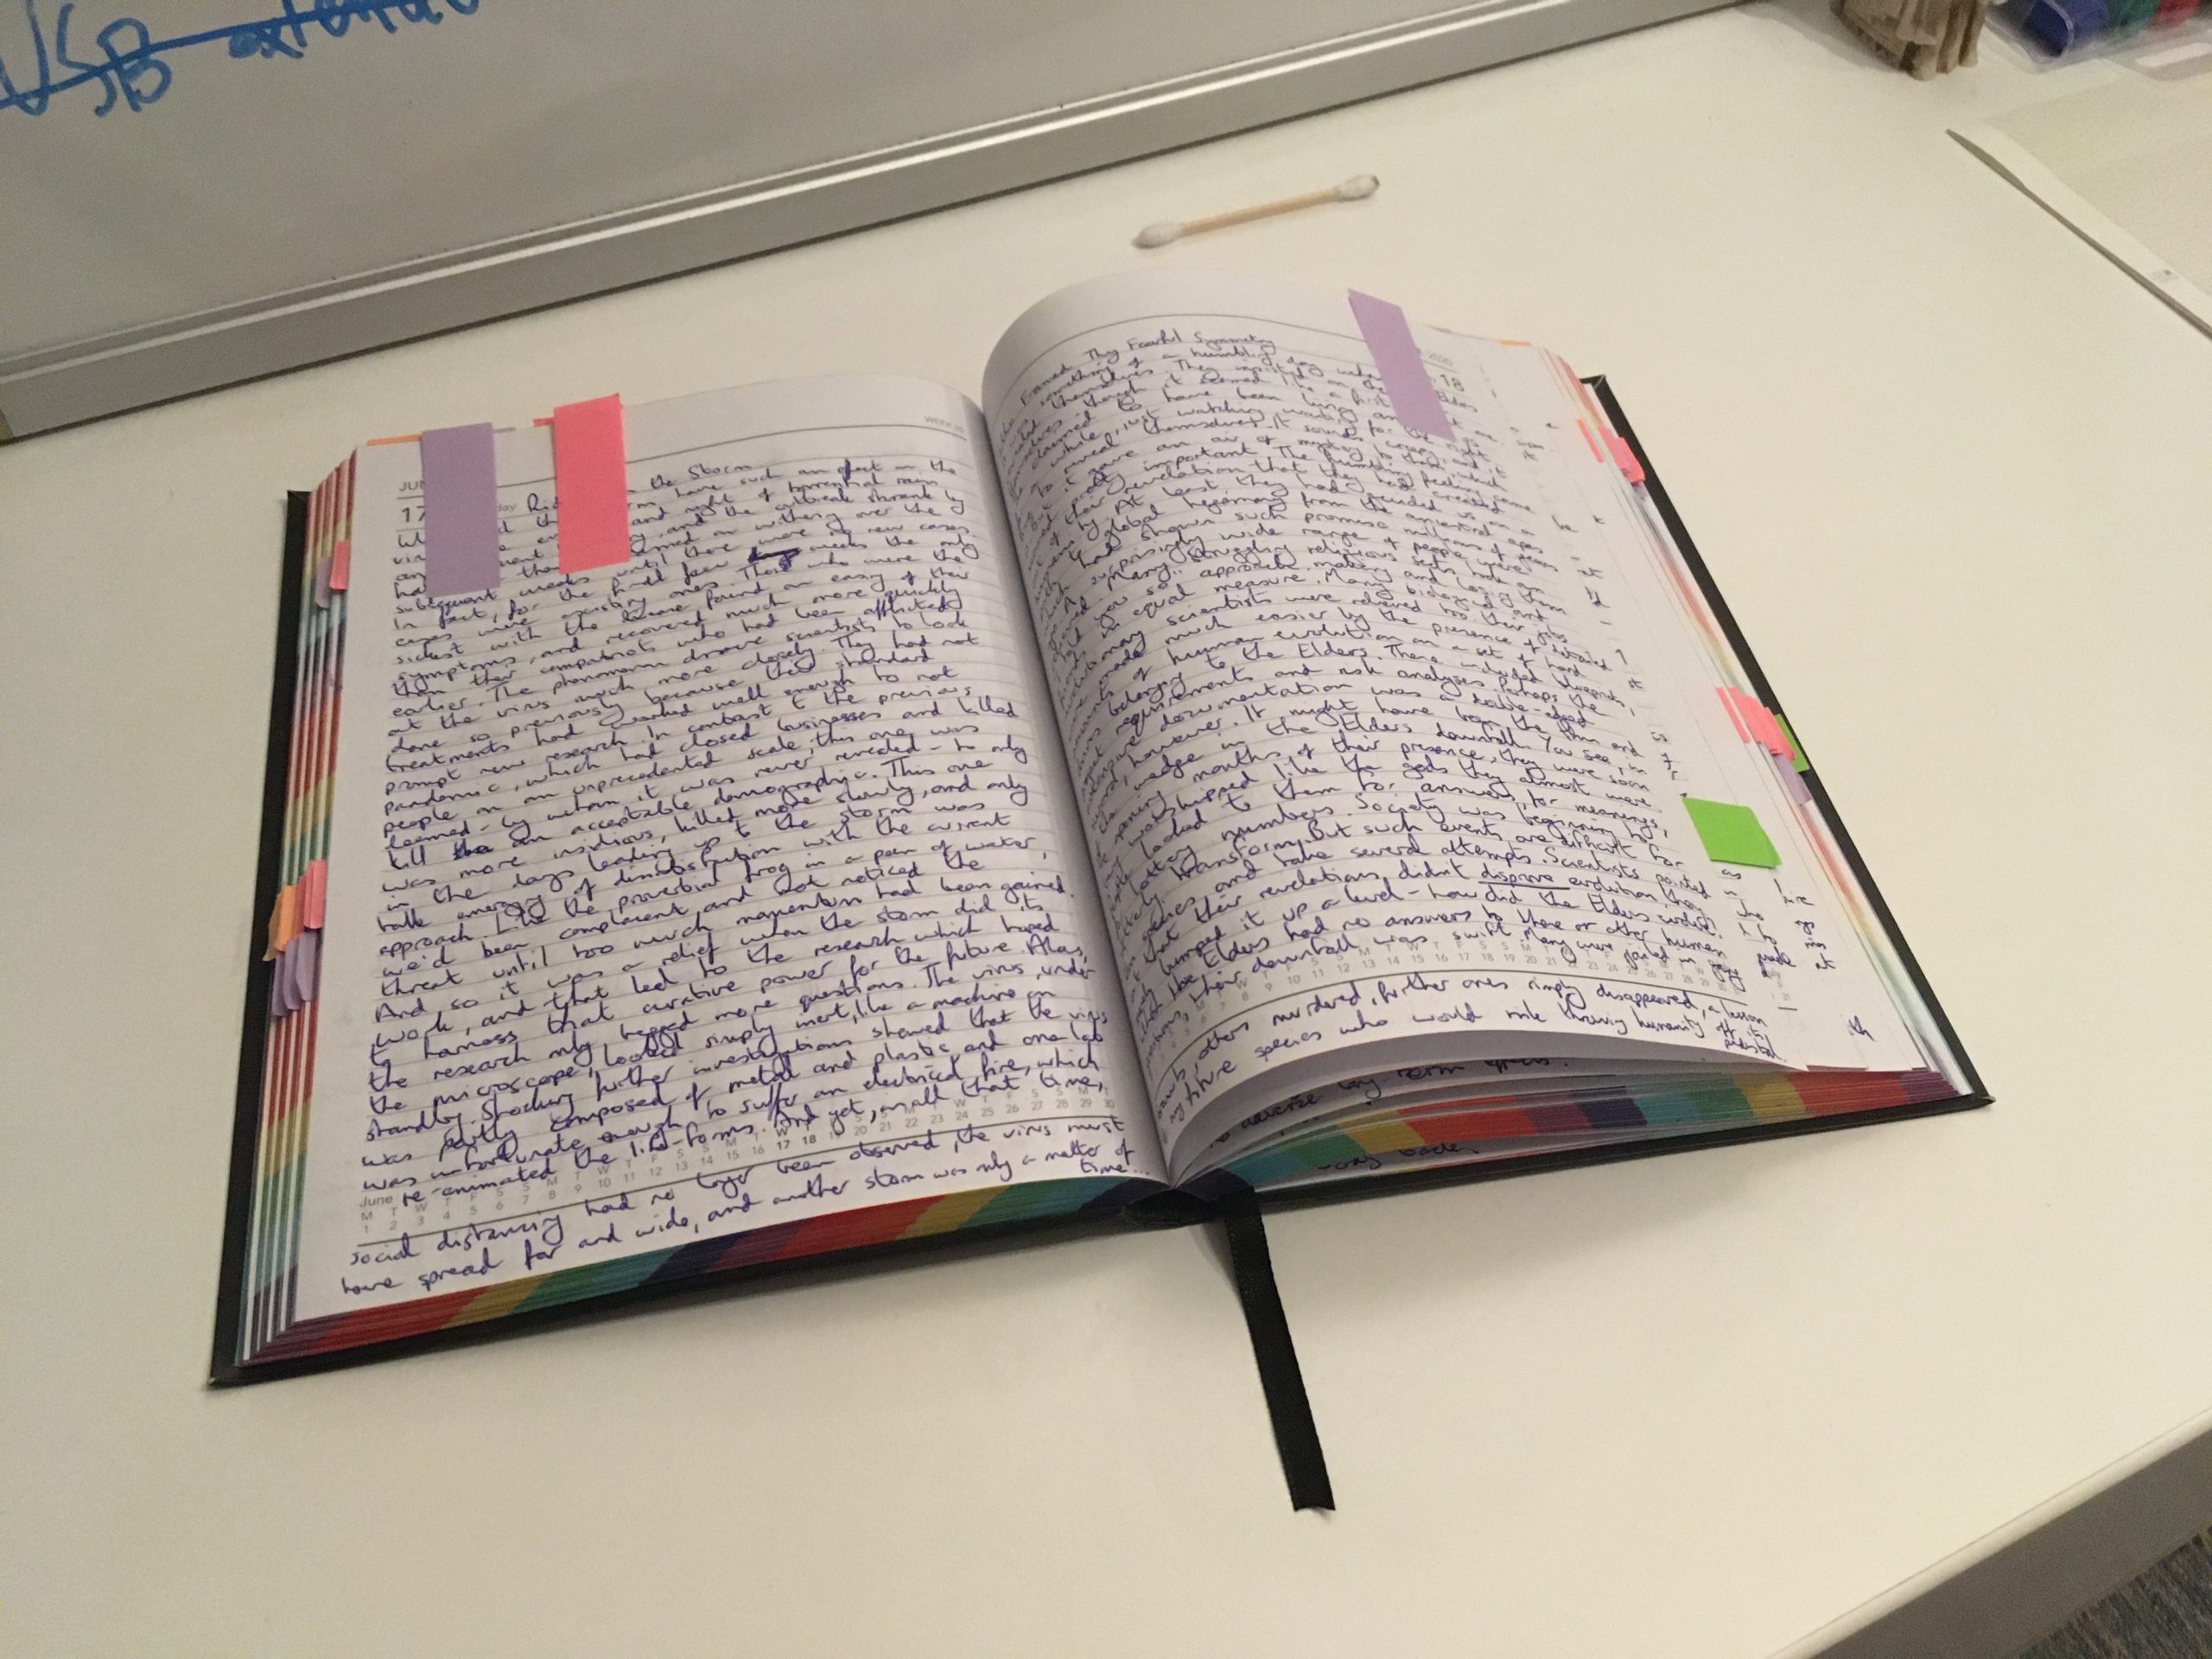 USB
WEEK 25
JUN
17
the Storm
have such an effect on the
and night of torrential rain
and the outbreak shrank by
withering over the
subsequent weeks until there were no new cases.
In fact, for the first few weeks the only
cases were existing ones. Those who were the
sickest with the disease found an easing of their
symptoms, and recovered much more quickly
than their compatriots who had been afflicted
earlier. The phenomenon drove scientists to look
at the virus much more closely. They had not
done so previously because their standard
treatments had worked well enough to not
prompt new research. In contrast to the previous
pandemic, which had closed businesses and killed
people on an unprecedented scale, this one was
deemed - by whom it was never revealed - to only
kill an acceptable demographic. This one
was more insidious, killed more slowly, and only
in the days leading up to the storm was
talk emerging of dissatisfaction with the current
approach. Like the proverbial frog in a pan of water,
we'd been complacent and not noticed the
threat until too much momentum had been gained.
And so it was a relief when the storm did its
work, and that led to the research which hoped
to harness that curative power for the future. Alas,
the research only begged more questions. The virus, under
the microscope, looked simply inert, like a machine on
standby. Shocking further investigations showed that the virus
was partly composed of metal and plastic and one lab
was unfortunate enough to suffer an electrical fire, which
re-animated the life-forms. And yet, in all that time,
June
M T W T F S S M T W T F S S M T W T F S S M T W T F S S M T
1 2 3 4 5 6 7 8 9 10 11 12 13 14 15 16 17 18 19 20 21 22 23 24 25 26 27 28 29 30
social distancing had no longer been observed, the virus must
have spread far and wide, and another storm was only a matter of
time...
2020
18
Framed Thy Fearful Symmetry
something of a humbling day when
themselves. They insisted on the
though it seemed like a first
to have been living
while, just watching, waiting for the right
reveal themselves. It sounds creepy, and it
it gave an air of mystery to them, which
pretty important. The humbling feeling came
their revelation that they had created
At least they had guided us on a
global hegemony from the ancestral apes
had shown such promise millions of years
A surprisingly wide range of people were
Many struggling religious sects took an
you so" approach, making and losing them
in equal measure. Many biological and
scientists were relieved too, their jobs
made much easier by the presence of detailed
of human evolution on a set of hard
belonging to the Elders. These included blueprints,
requirements and risk analyses. Perhaps the
documentation was a double-edged
however. It might have been the thin end
wedge in the Elders downfall. You see, in
opening months of their presence, they were soon
worshipped like the gods they almost were.
looked to them for answers, for meanings,
lottery numbers. Society was beginning to
transform. But such events are difficult for
and take several attempts. Scientists pointed
that their revelations didn't disprove evolution, they
bumped it up a level - how did the Elders evolve?
the Elders had no answers to these or other human
questions, their downfall was swift. Many were jailed in
others murdered, further ones simply disappeared, a lesson
any future species who would risk throwing humanity off its
pedestal.